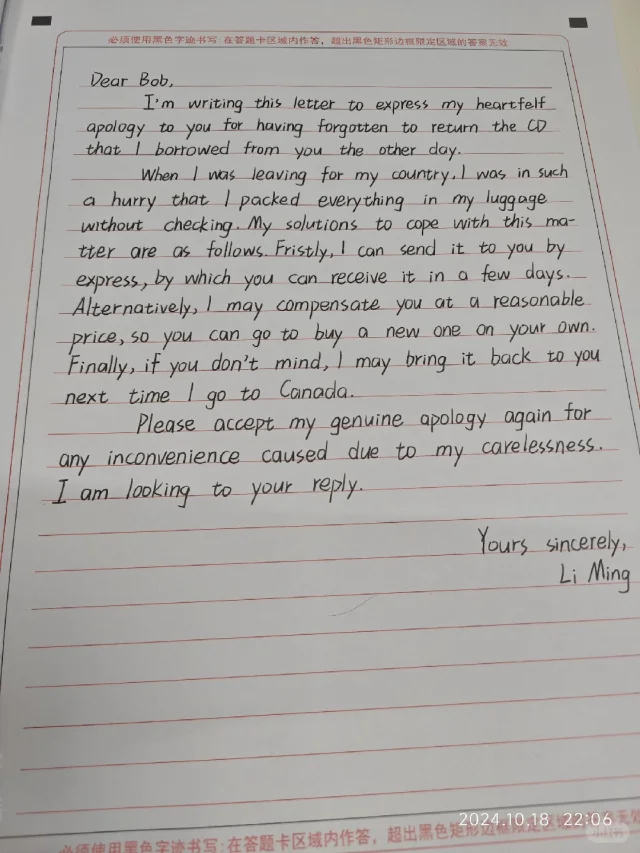 必须使用黑色字迹书写:在答题卡区域内作答，超出黑色矩形边框限定区域的答案无效
Dear Bob,
I'm writing this letter to express my heartfelf
apology to you for having forgotten to return the CD
that I borrowed from you the other day.
When I was leaving for my country, I was in such
a hurry that I packed everything in my luggage
without checking. My solutions to cope with this ma-
tter are as follows. Fristly, I can send it to you by
express, by which you can receive it in a few days.
Alternatively, I may compensate you at a reasonable
price, so you can go to buy a new one on your own.
Finally, if you don't mind, I may bring it back to you
next time I go to Canada.
Please accept my genuine apology again for
any inconvenience caused due to my carelessness.
I am looking to your reply.
Yours sincerely,
Li Ming
2024.10.18 22:06
必须使用黑色字迹书写:在答题卡区域内作答，超出黑色矩形边框限定区域